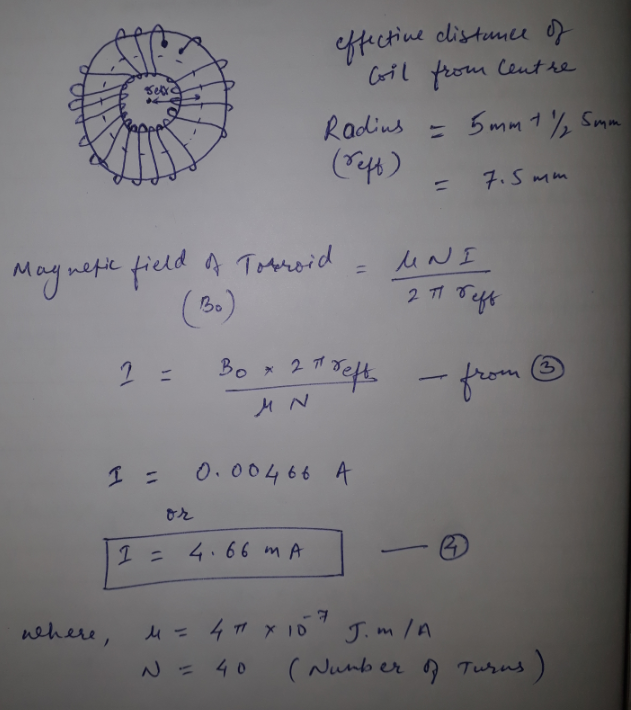 effective distance of
coil from Centre
reff
Radius = 5mm + 1/2 5mm
(reff)
= 7.5 mm
Magnetic field of Torroid = μNI / 2π reff
(B0)
I = B0 × 2πreff / μN — from ③
I = 0.00466 A
or
I = 4.66 mA — ④
where, μ = 4π × 10⁻⁷ J.m/A
N = 40 (Number of Turns)